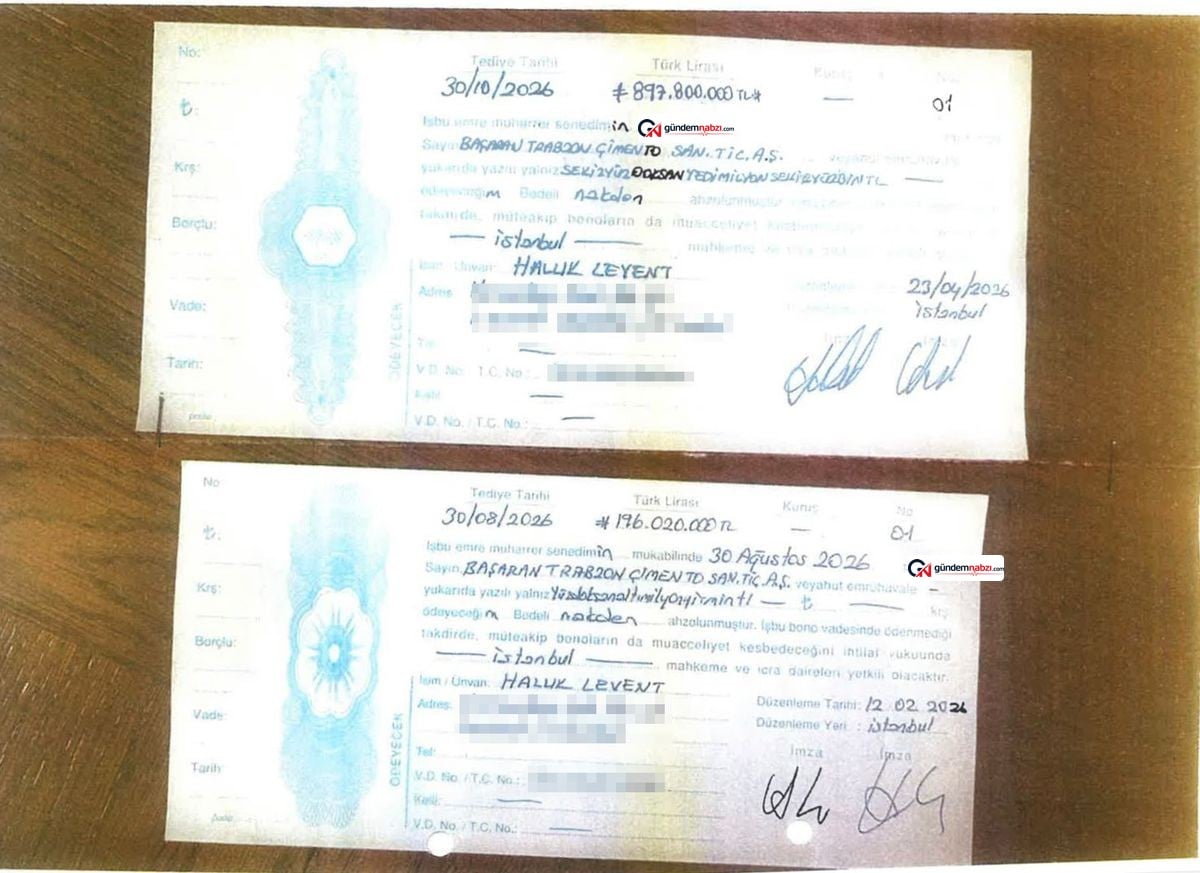 No:
Tediye Tarihi Türk Lirası Kuruş No
30/10/2026 # 897.800.000 TL# — 01
₺:
İşbu emre muharrer senedimin gündemnabzı.com
Sayın BAŞARAN TRABZON ÇİMENTO SAN.TİC.A.Ş. veyahut emrühavale
Krş:
yukarıda yazılı yalnız SEKİZYÜZDOKSANYEDİMİLYONSEKİZYÜZBİNTL —
ödeyeceğim Bedeli nakden ahzolunmuştur.
takdirde, müteakip bonoların da muacceliyet
Borçlu:
— istanbul — mahkeme ve icra
İsim / Ünvan: HALUK LEVENT
Adres
23/04/2026
istanbul
Vade:
İmza İmza
ÖDEYECEK
Tel
Tarih:
V.D. No. T.C. No.:
Kefil —
V.D. No. / T.C. No.: —
No
Tediye Tarihi Türk Lirası Kuruş No
30/08/2026 # 196.020.000 TL — 01
₺:
İşbu emre muharrer senedimin mukabilinde 30 Ağustos 2026 gündemnabzı.com
Sayın BAŞARAN TRABZON ÇİMENTO SAN.TİC.A.Ş. veyahut emrühavale —
Krş:
yukarıda yazılı yalnız — ₺ — krş
ödeyeceğim Bedeli nakden ahzolunmuştur. İşbu bono vadesinde ödenmediği
takdirde, müteakip bonoların da muacceliyet kesbedeceğini ihtilaf vukuunda
Borçlu:
— istanbul — mahkeme ve icra daireleri yetkili olacaktır.
İsim / Ünvan: HALUK LEVENT
Adres: Düzenleme Tarihi: 12 02 2026
Vade: Düzenleme Yeri : istanbul
İmza İmza
ÖDEYECEK
Tel:
Tarih:
V.D. No. / T.C. No.:
Kefil: —
V.D. No. / T.C. No.: —